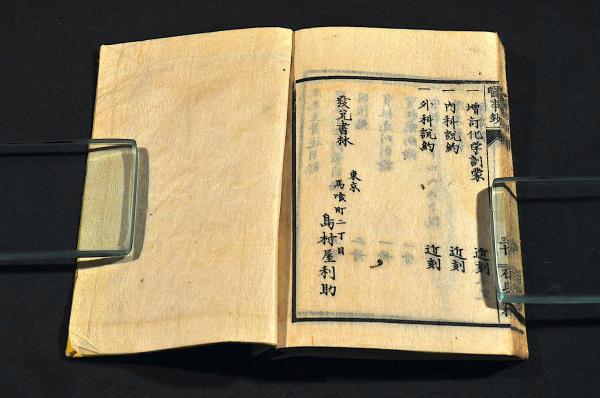 一 増訂化学訓蒙 近刻
一 内科説約 近刻
一 外科説約 近刻
發兌書林
東京
馬喰町二丁目
島村屋利助